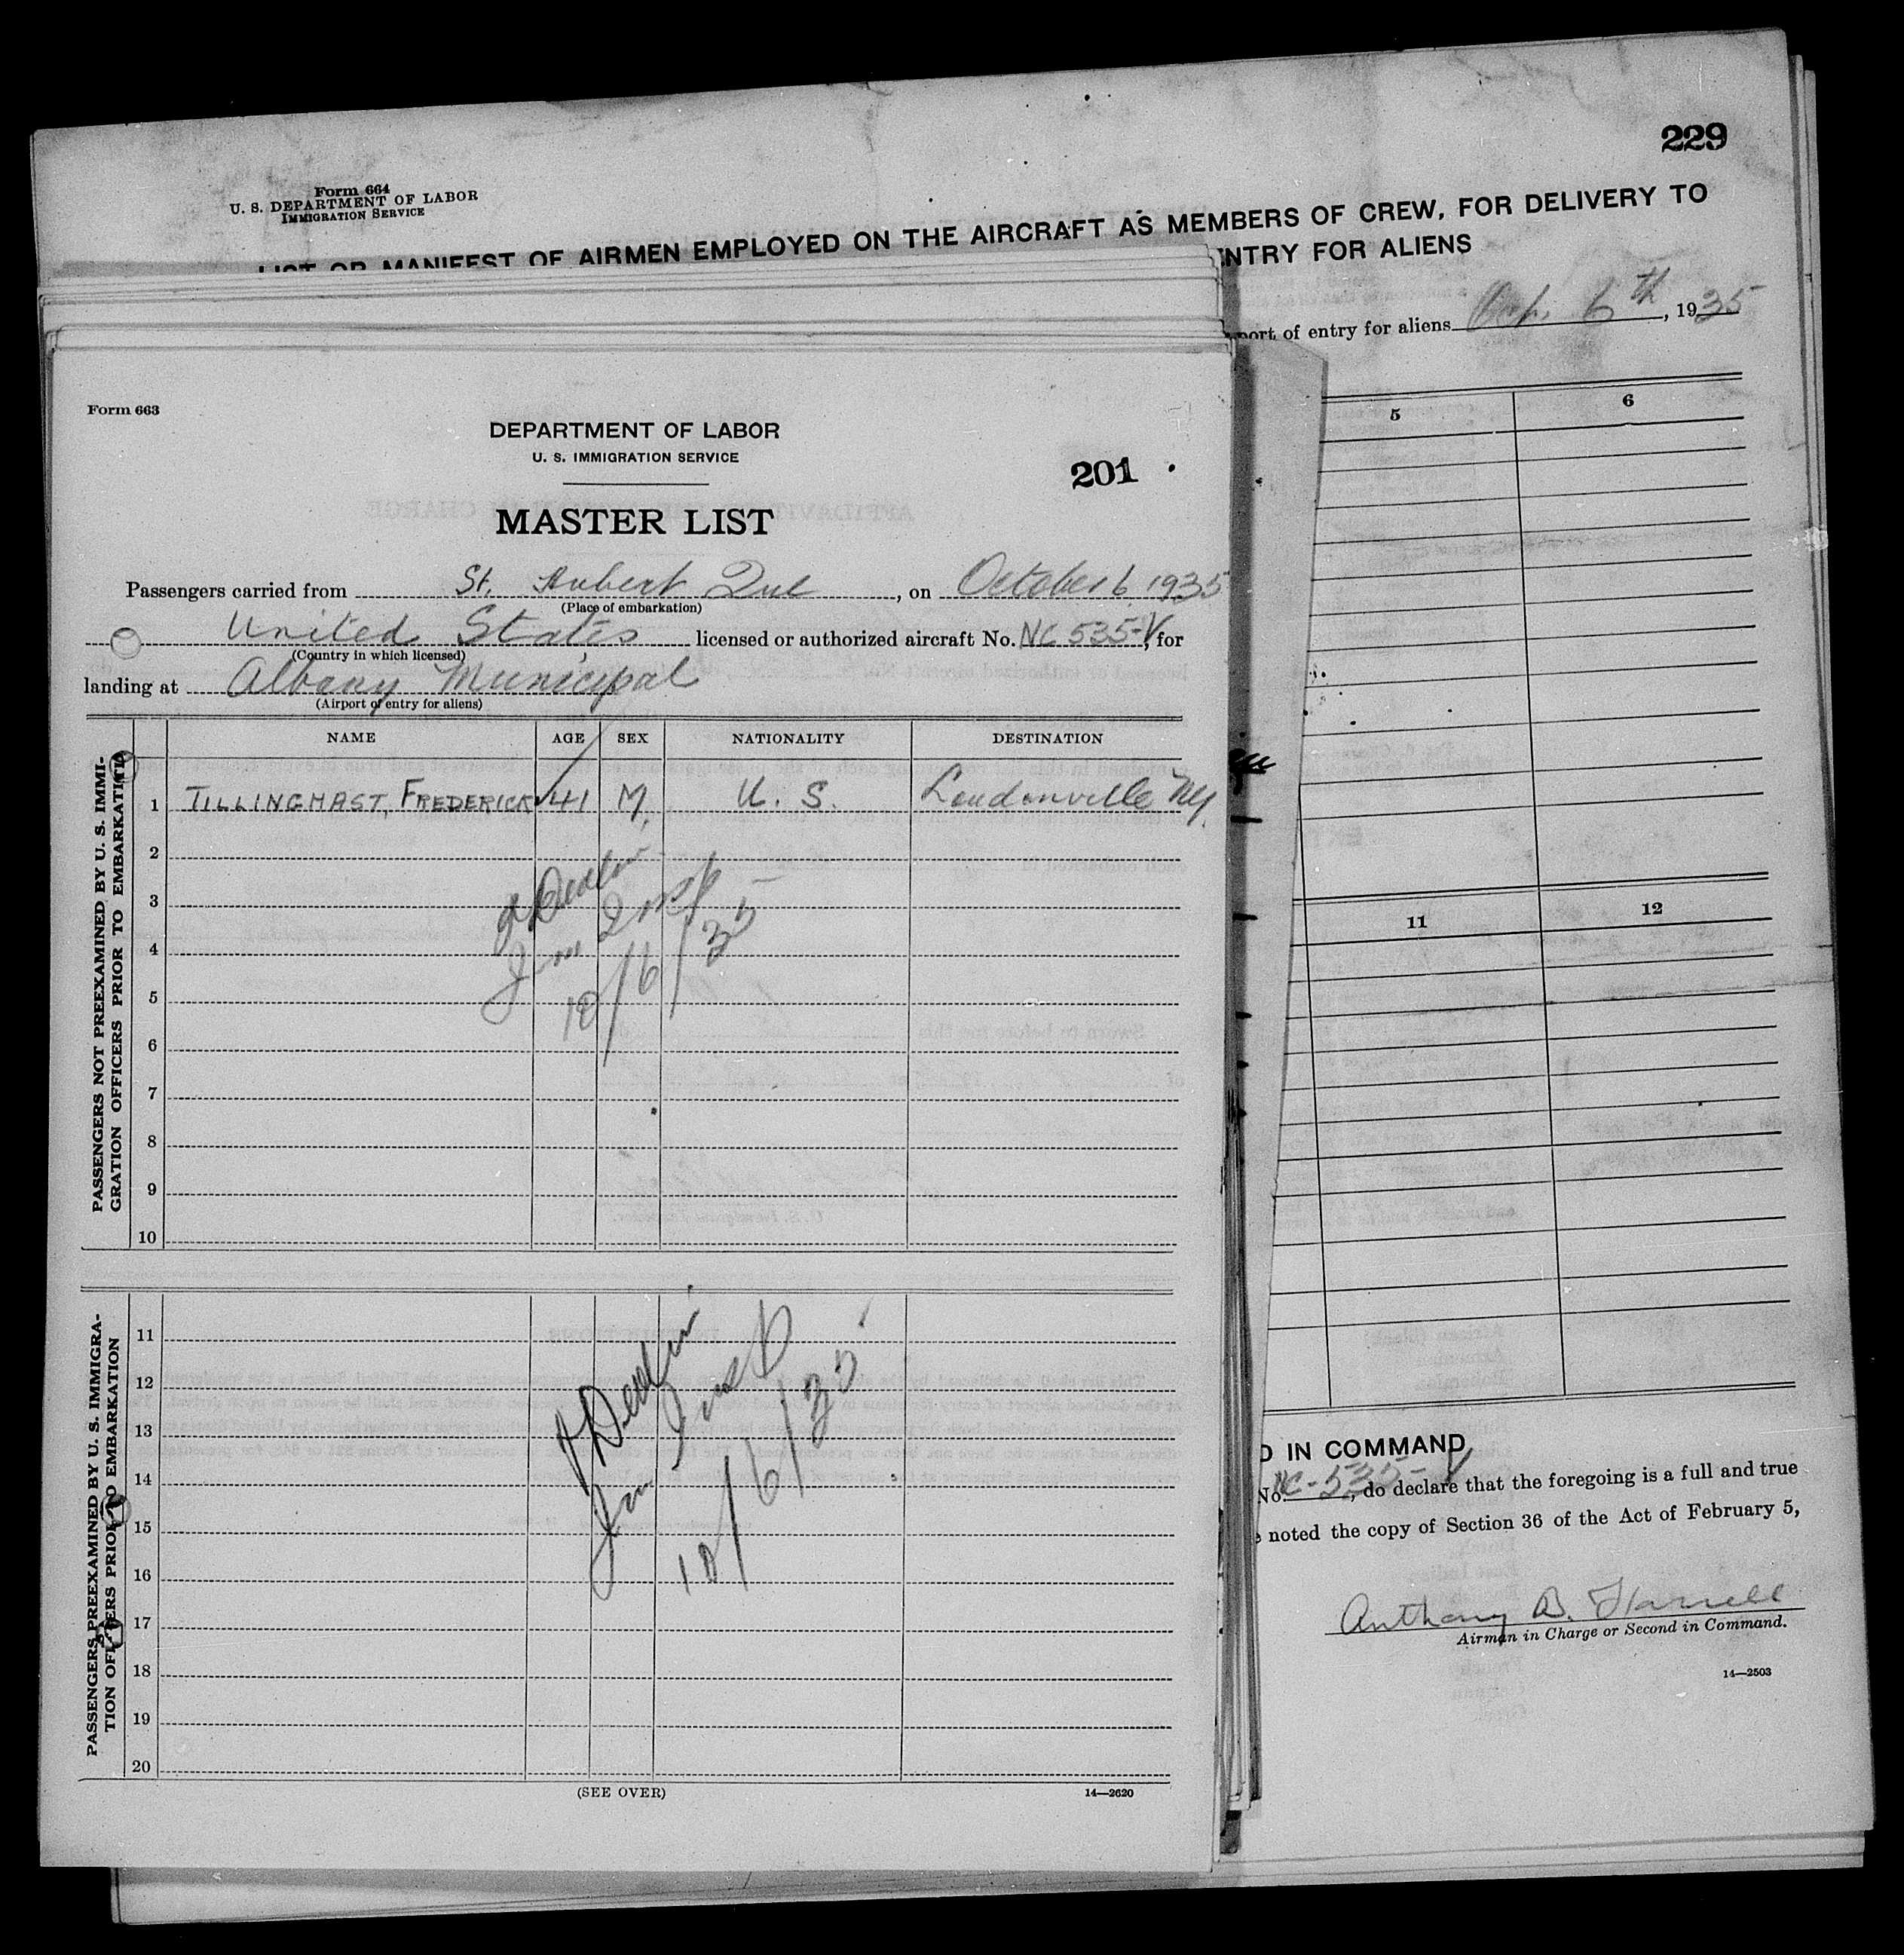 229
Form 664
U. S. DEPARTMENT OF LABOR
IMMIGRATION SERVICE
LIST OR MANIFEST OF AIRMEN EMPLOYED ON THE AIRCRAFT AS MEMBERS OF CREW, FOR DELIVERY TO
ENTRY FOR ALIENS
port of entry for aliens 6th, 1935
5 6
11 12
D IN COMMAND
No. NC-535-V, do declare that the foregoing is a full and true
noted the copy of Section 36 of the Act of February 5,
Anthony B.
Airman in Charge or Second in Command.
14—2503
Form 663
DEPARTMENT OF LABOR
U. S. IMMIGRATION SERVICE
201
MASTER LIST
Passengers carried from St. Hubert Que, on October 6, 1935
(Place of embarkation)
United States licensed or authorized aircraft No. NC 535-V, for
(Country in which licensed)
landing at Albany Municipal
(Airport of entry for aliens)
NAME AGE SEX NATIONALITY DESTINATION
PASSENGERS NOT PREEXAMINED BY U. S. IMMI-
GRATION OFFICERS PRIOR TO EMBARKATION
1 TILLINGHAST, FREDERICK 41 M. U. S. Loudonville N.Y.
2
3
4
5
6
7
8
9
10
10/6/35
PASSENGERS PREEXAMINED BY U. S. IMMIGRA-
TION OFFICERS PRIOR TO EMBARKATION
11
12
13
14
15
16
17
18
19
20
10/6/35
(SEE OVER)
14—2620